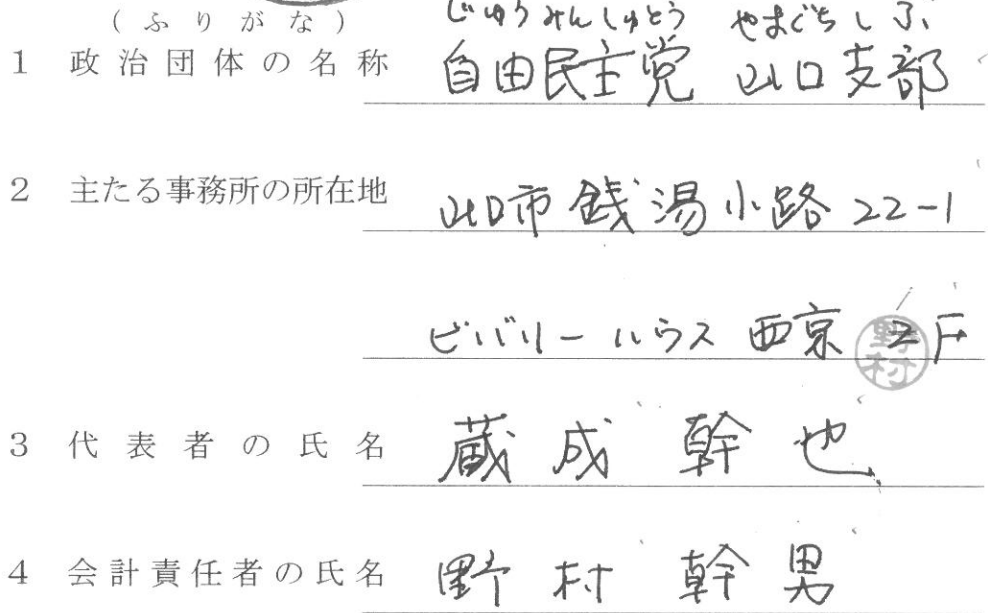 (ふりがな) じゆうみんしゅとう やまぐちしぶ
1 政治団体の名称 自由民主党 山口支部
2 主たる事務所の所在地 山口市銭湯小路22-1
ビバリーハウス西京 戸
野村
3 代表者の氏名 蔵成幹也
4 会計責任者の氏名 野村幹男